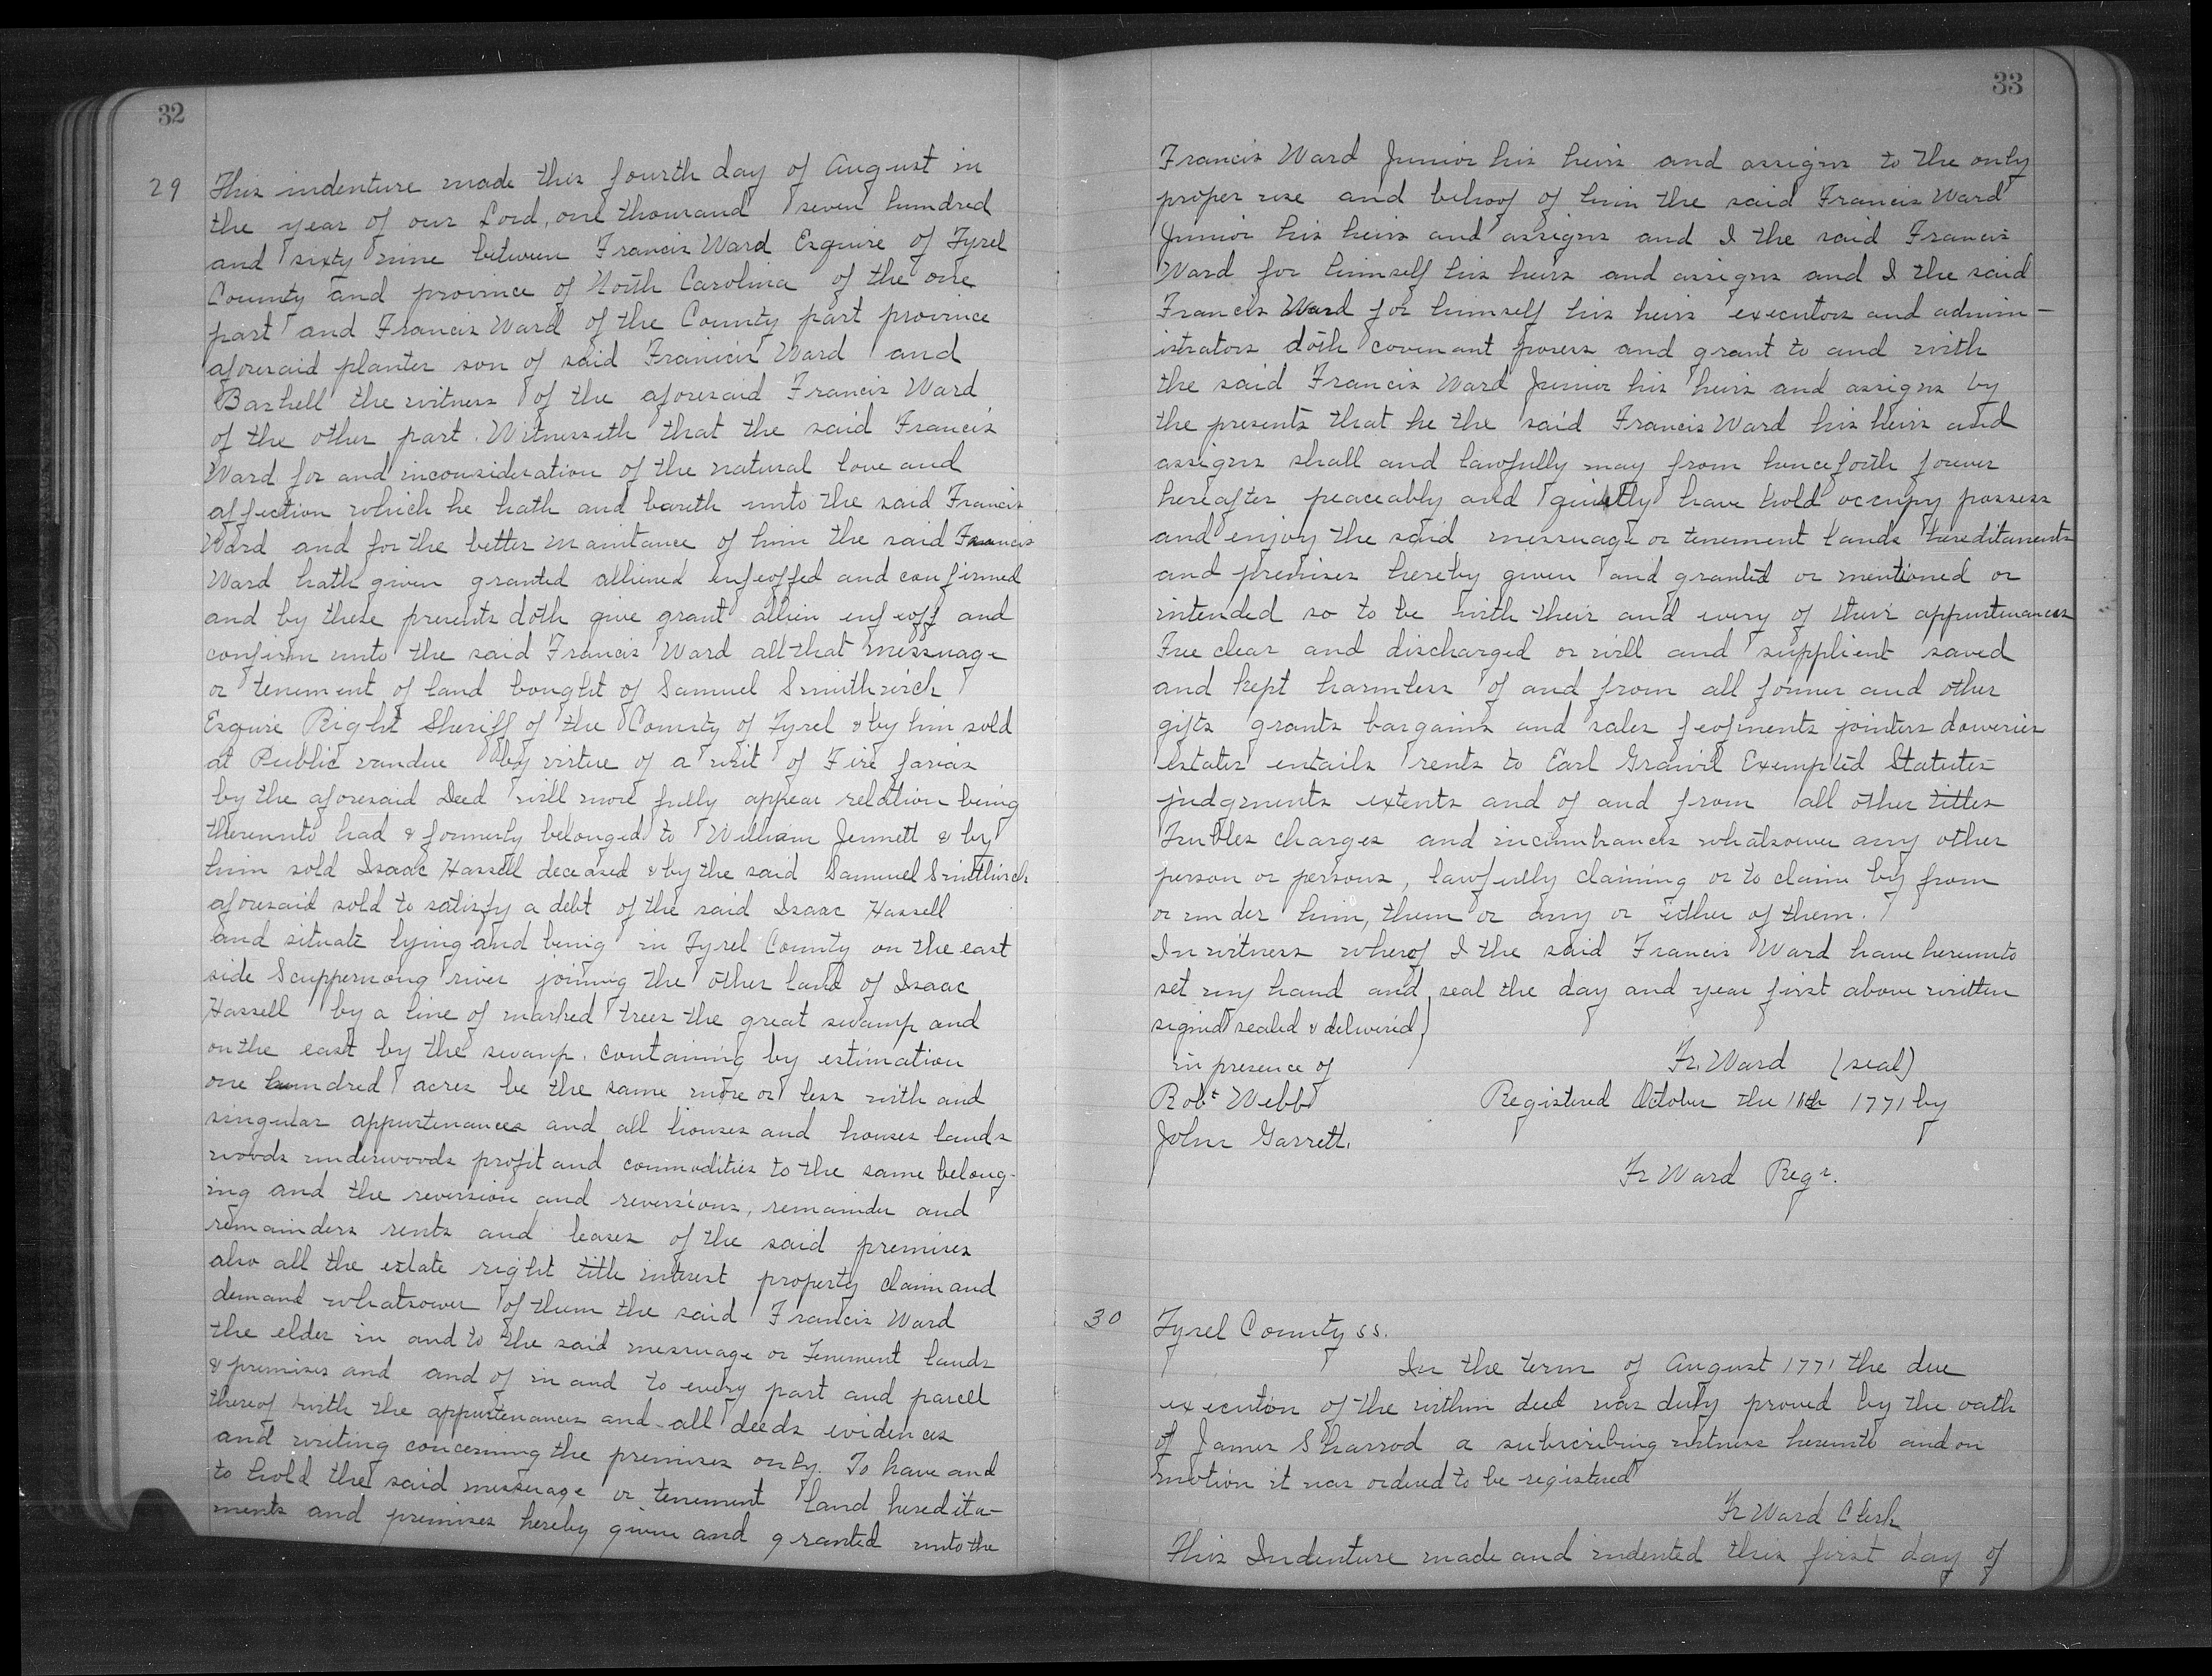 32
29 This indenture made this fourth day of August in
the year of our Lord, one thousand seven hundred
and sixty nine between Francis Ward Esquire of Tyrel
County and province of North Carolina of the one
part and Francis Ward of the County part province
aforesaid planter son of said Francis Ward and
Bashell the witness of the aforesaid Francis Ward
of the other part. Witnesseth that the said Francis
Ward for and inconsideration of the natural love and
affection which he hath and bareth unto the said Francis
Ward and for the better maintance of him the said Francis
Ward hath given granted alliened enfeoffed and confirmed
and by these presents doth give grant allien enfeoff and
confirm unto the said Francis Ward all that messuage
or tenement of land bought of Samuel Smithwick
Esquire Right Sheriff of the County of Tyrel & by him sold
at Public vandue by virtue of a writ of Fire farias
by the aforesaid Deed will more fully appear relation being
thereunto had & formerly belonged to William Jennett & by
him sold Isaac Hassell deceased & by the said Samuel Smithwick
aforesaid sold to satisfy a debt of the said Isaac Hassell
and situate lying and being in Tyrel County on the east
side Scuppernong river joining the other land of Isaac
Hassell by a line of marked trees the great swamp and
on the east by the swamp. containing by estimation
one hundred acres be the same more or less with and
singular appurtenances and all houses and houses lands
woods underwoods profit and commodities to the same belong-
ing and the reversion and reversions, remainder and
remainders rents and leases of the said premises
also all the estate right title interest property claim and
demand whatsower of them the said Francis Ward
the elder in and to the said messuage or Tenement lands
& premises and and of in and to every part and parcel
thereof with the appurtenances and all deeds evidences
and writing concerning the premises only. To have and
to hold the said messuage or tenement land heredita-
ments and premises hereby given and granted unto the
33
Francis Ward Junior his heirs and assigns to the only
proper use and behoof of him the said Francis Ward
Junior his heirs and assigns and I the said Francis
Ward for himself his heirs and assigns and I the said
Francis Ward for himself his heirs executors and admin-
istrators doth covenant and grant to and with
the said Francis Ward Junior his heirs and assigns by
the presents that he the said Francis Ward his heirs and
assigns shall and lawfully may from henceforth forever
hereafter peaceably and quietly have hold occupy possess
and enjoy the said messuage or tenement lands hereditaments
and premises hereby given and granted or mentioned or
intended so to be with their and every of their appurtenances
Free clear and discharged or will and supplient saved
and kept harmless of and from all former and other
gifts grants bargains and sales feofments jointers doweries
estates entails rents to Earl Granvil Exempted Statutes
judgments extents and of and from all other titles
Trubles charges and incumbrances whatsoever any other
person or persons, lawfully claiming or to claim by from
or under him, them or any or either of them.
In witness whereof I the said Francis Ward have hereunto
set my hand and seal the day and year first above written
signed sealed & delivered
in presence of
Fr. Ward (seal)
Robt Webb
Registered October the 11th 1771 by
John Garrett.
Fr Ward Regr.
30 Tyrel County ss.
In the term of August 1771 the due
execution of the within deed was duly proved by the oath
of James Sharrod a subscribing witness hereunto and on
motion it was ordered to be registered
Fr Ward Clerk
This Indenture made and indented this first day of